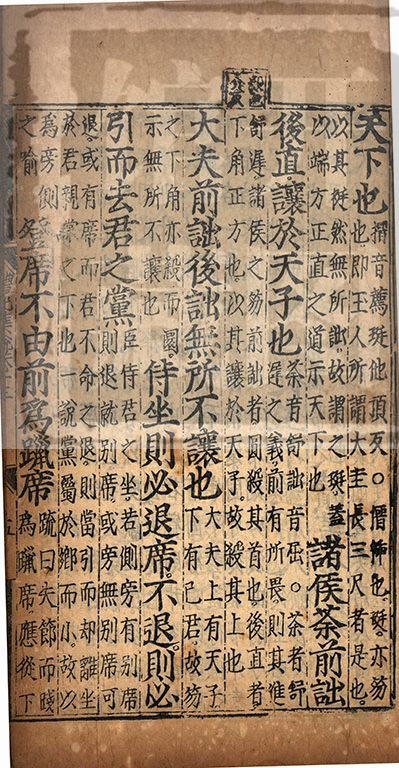 天下也搢音薦珽他頂反○搢㨷也珽亦笏也即玉人所謂大圭長三尺者是也
以其挺然無所詘故謂之珽蓋以端方正直之道示天下也諸侯荼前詘
後直讓於天子也荼音舒詘音屈○荼者舒遲之義前有所畏則其進
舒遲諸侯之笏前詘者圓殺其首也後直者下角正方也以其讓於天子故殺其上也
大夫前詘後詘無所不讓也大夫上有天子下有己君故笏
之下角亦殺而圜示無所不讓也侍坐則必退席不退則必
引而去君之黨臣侍君之坐若側旁有別席則退就別席或旁無別席可
退或有席而君不命之退則當引而却離坐於君親黨之下也一說黨屬於鄉而小故以
為旁側之喻登席不由前爲躐席疏曰失節而踐爲躐席應從下